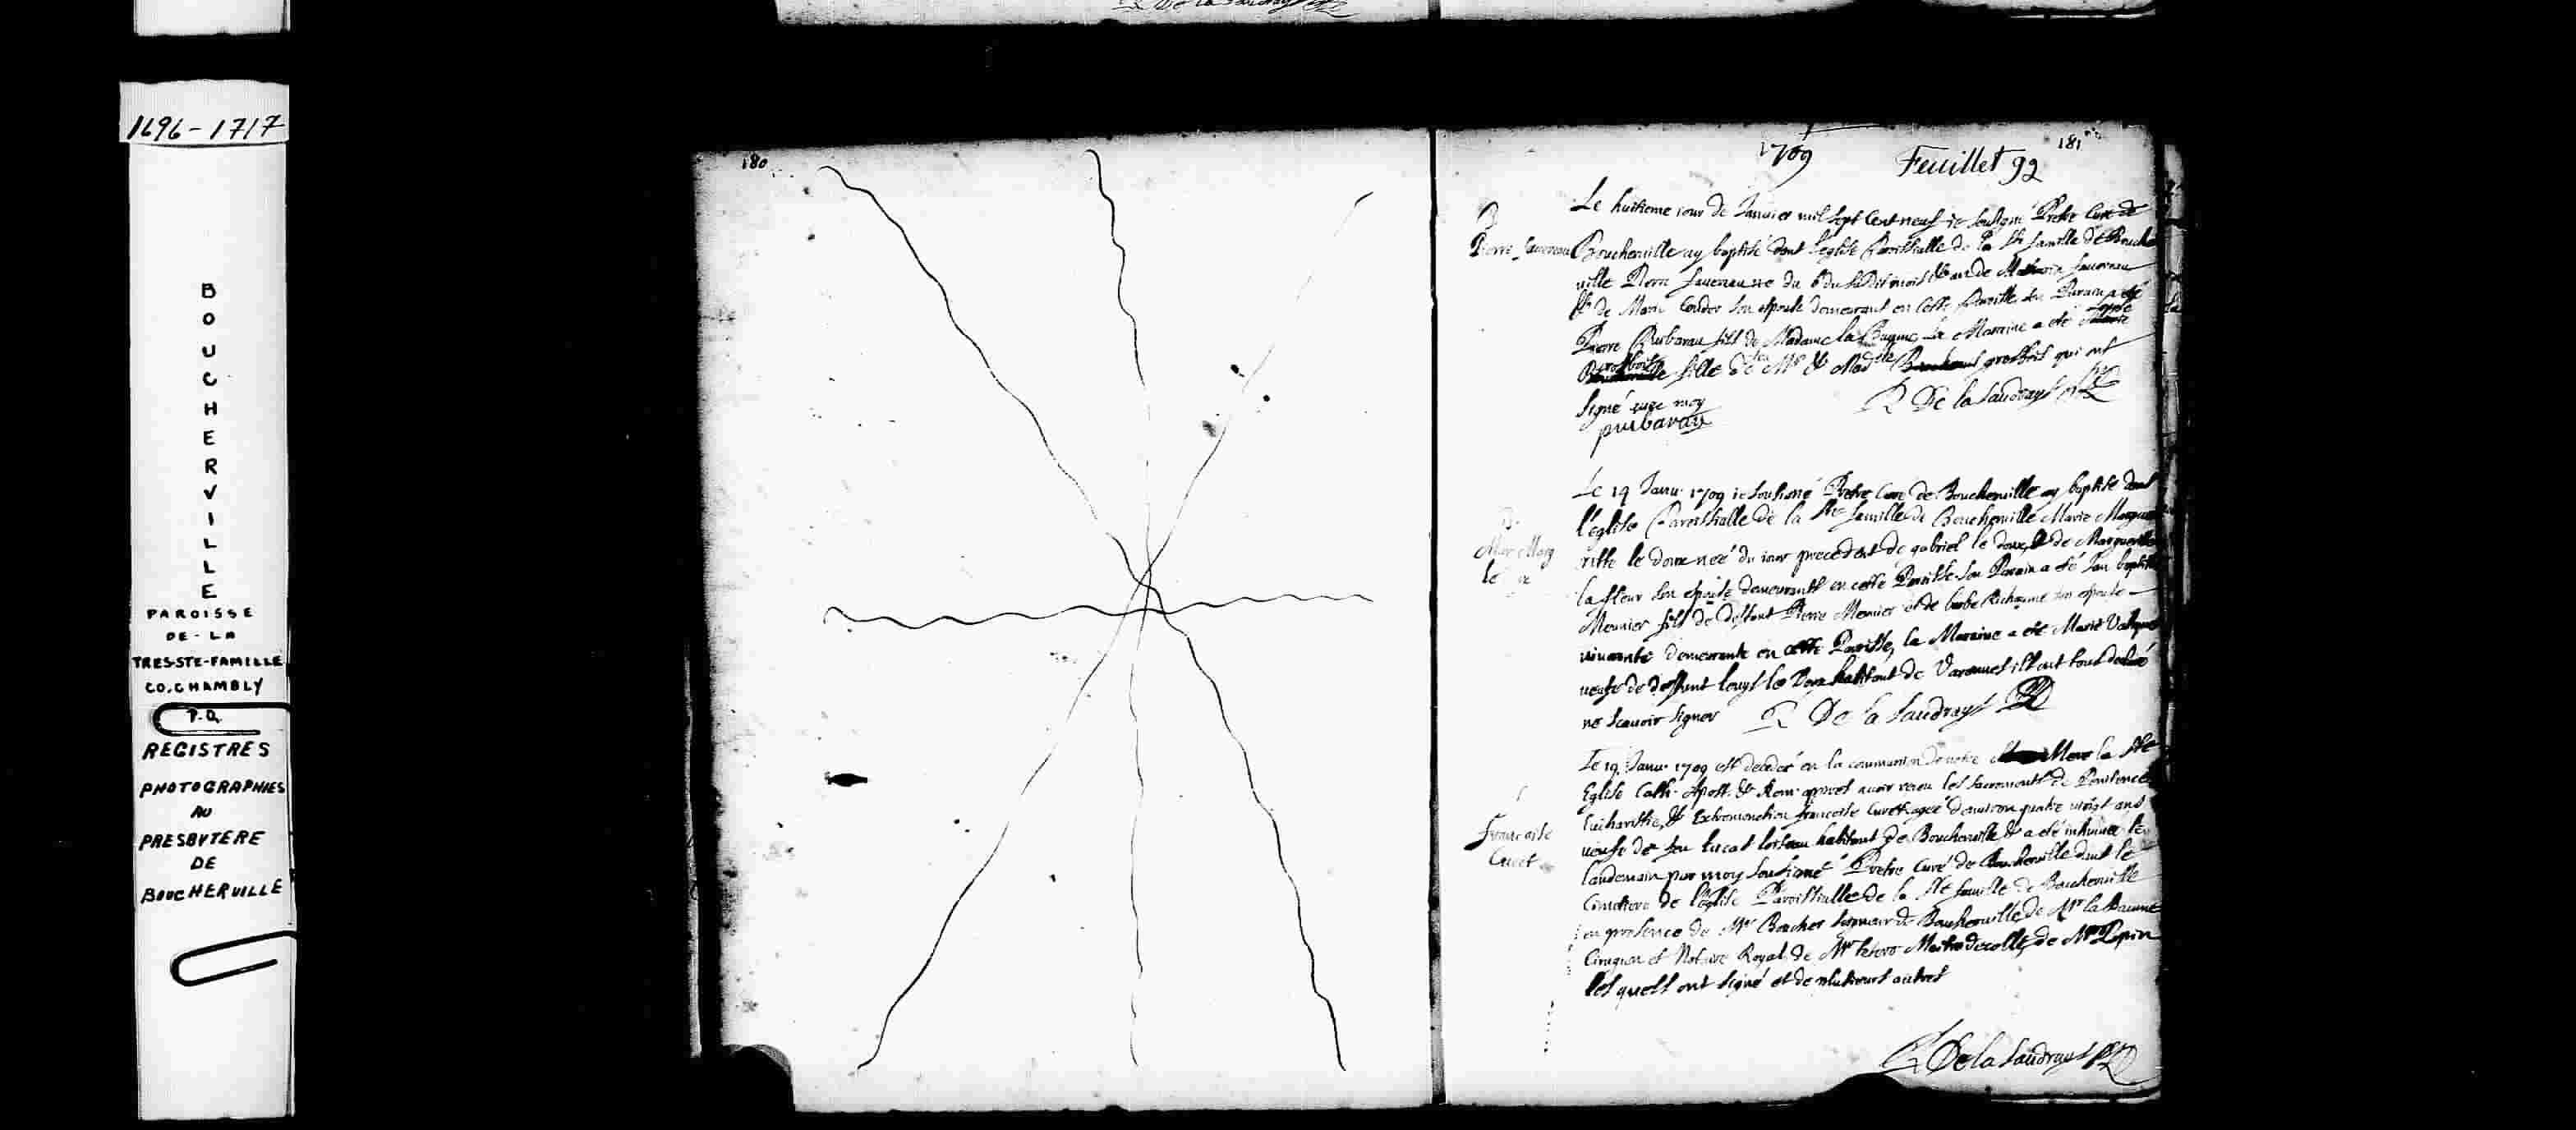 R De la Saudrays
1696-1717
BOUCHERVILLE
PAROISSE
DE-LA
TRES-STE-FAMILLE
CO. CHAMBLY
P.Q.
REGISTRES
PHOTOGRAPHIES
AU
PRESBYTERE
DE
BOUCHERVILLE
180
1709
Feuillet 92
181
B
Pierre
Le huitieme iour de Janvier mil sept Cent neuf ie soussigné Pretre Curé de
Boucherville ay baptisé dans l'eglise Paroissialle de la Ste famille de Bouche
ville Pierre né du 6 du susdit mois de
de Marie son epouse demeurant en cette Paroisse son Parain a été
Pierre fils de Madame la la Maraine a été
grosbois fille de feu Mr & Madlle grosbois qui ont
signé avec moy
R De la Saudrays
Le 19 Janu. 1709 ie soussigné Pretre Curé de Boucherville ay baptisé dans
l'eglise Paroissialle de la Ste famille de Boucherville Marie Margue
Mar Marg
le
ritte le doux neé du iour precedent de gabriel le doux & de Margueritte
la fleur son epouse demeurants en cette Paroisse son Parain a été Jan baptiste
Meunier fils de deffunt Pierre Meunier et de barbe Richaume son epouse
vivante demeurante en cette Paroisse, la Maraine a été Marie
veufe de deffunt louys le habitant de Varennes ils ont tous declaré
ne scauoir signer R De la Saudrays
Le 19. Janu. 1709 est decedeé en la communion de notre Mere la Ste
Eglise Cath. Apost. & Rom. apres auoir receu les sacrements de Penitence
Eucharistie, & Extremonction françoise Curet ageé d'enuiron quatre vingt ans
françoise
Curet
veufe de feu lucas loiseau habitant de Boucherville & a été inhumeé le
landemain par moy soussigné Pretre Curé de Boucherville dans le
Cimetiere de l'Eglise Paroissialle de la Ste famille de Boucherville
en presence de Mr Boucher seigneur de Boucherville de Mr la Baume
Cirugien et Notaire Royal de Mr Maitre decolle, de Mr
les quels ont signé et de plusieurs autres
R De la Saudrays